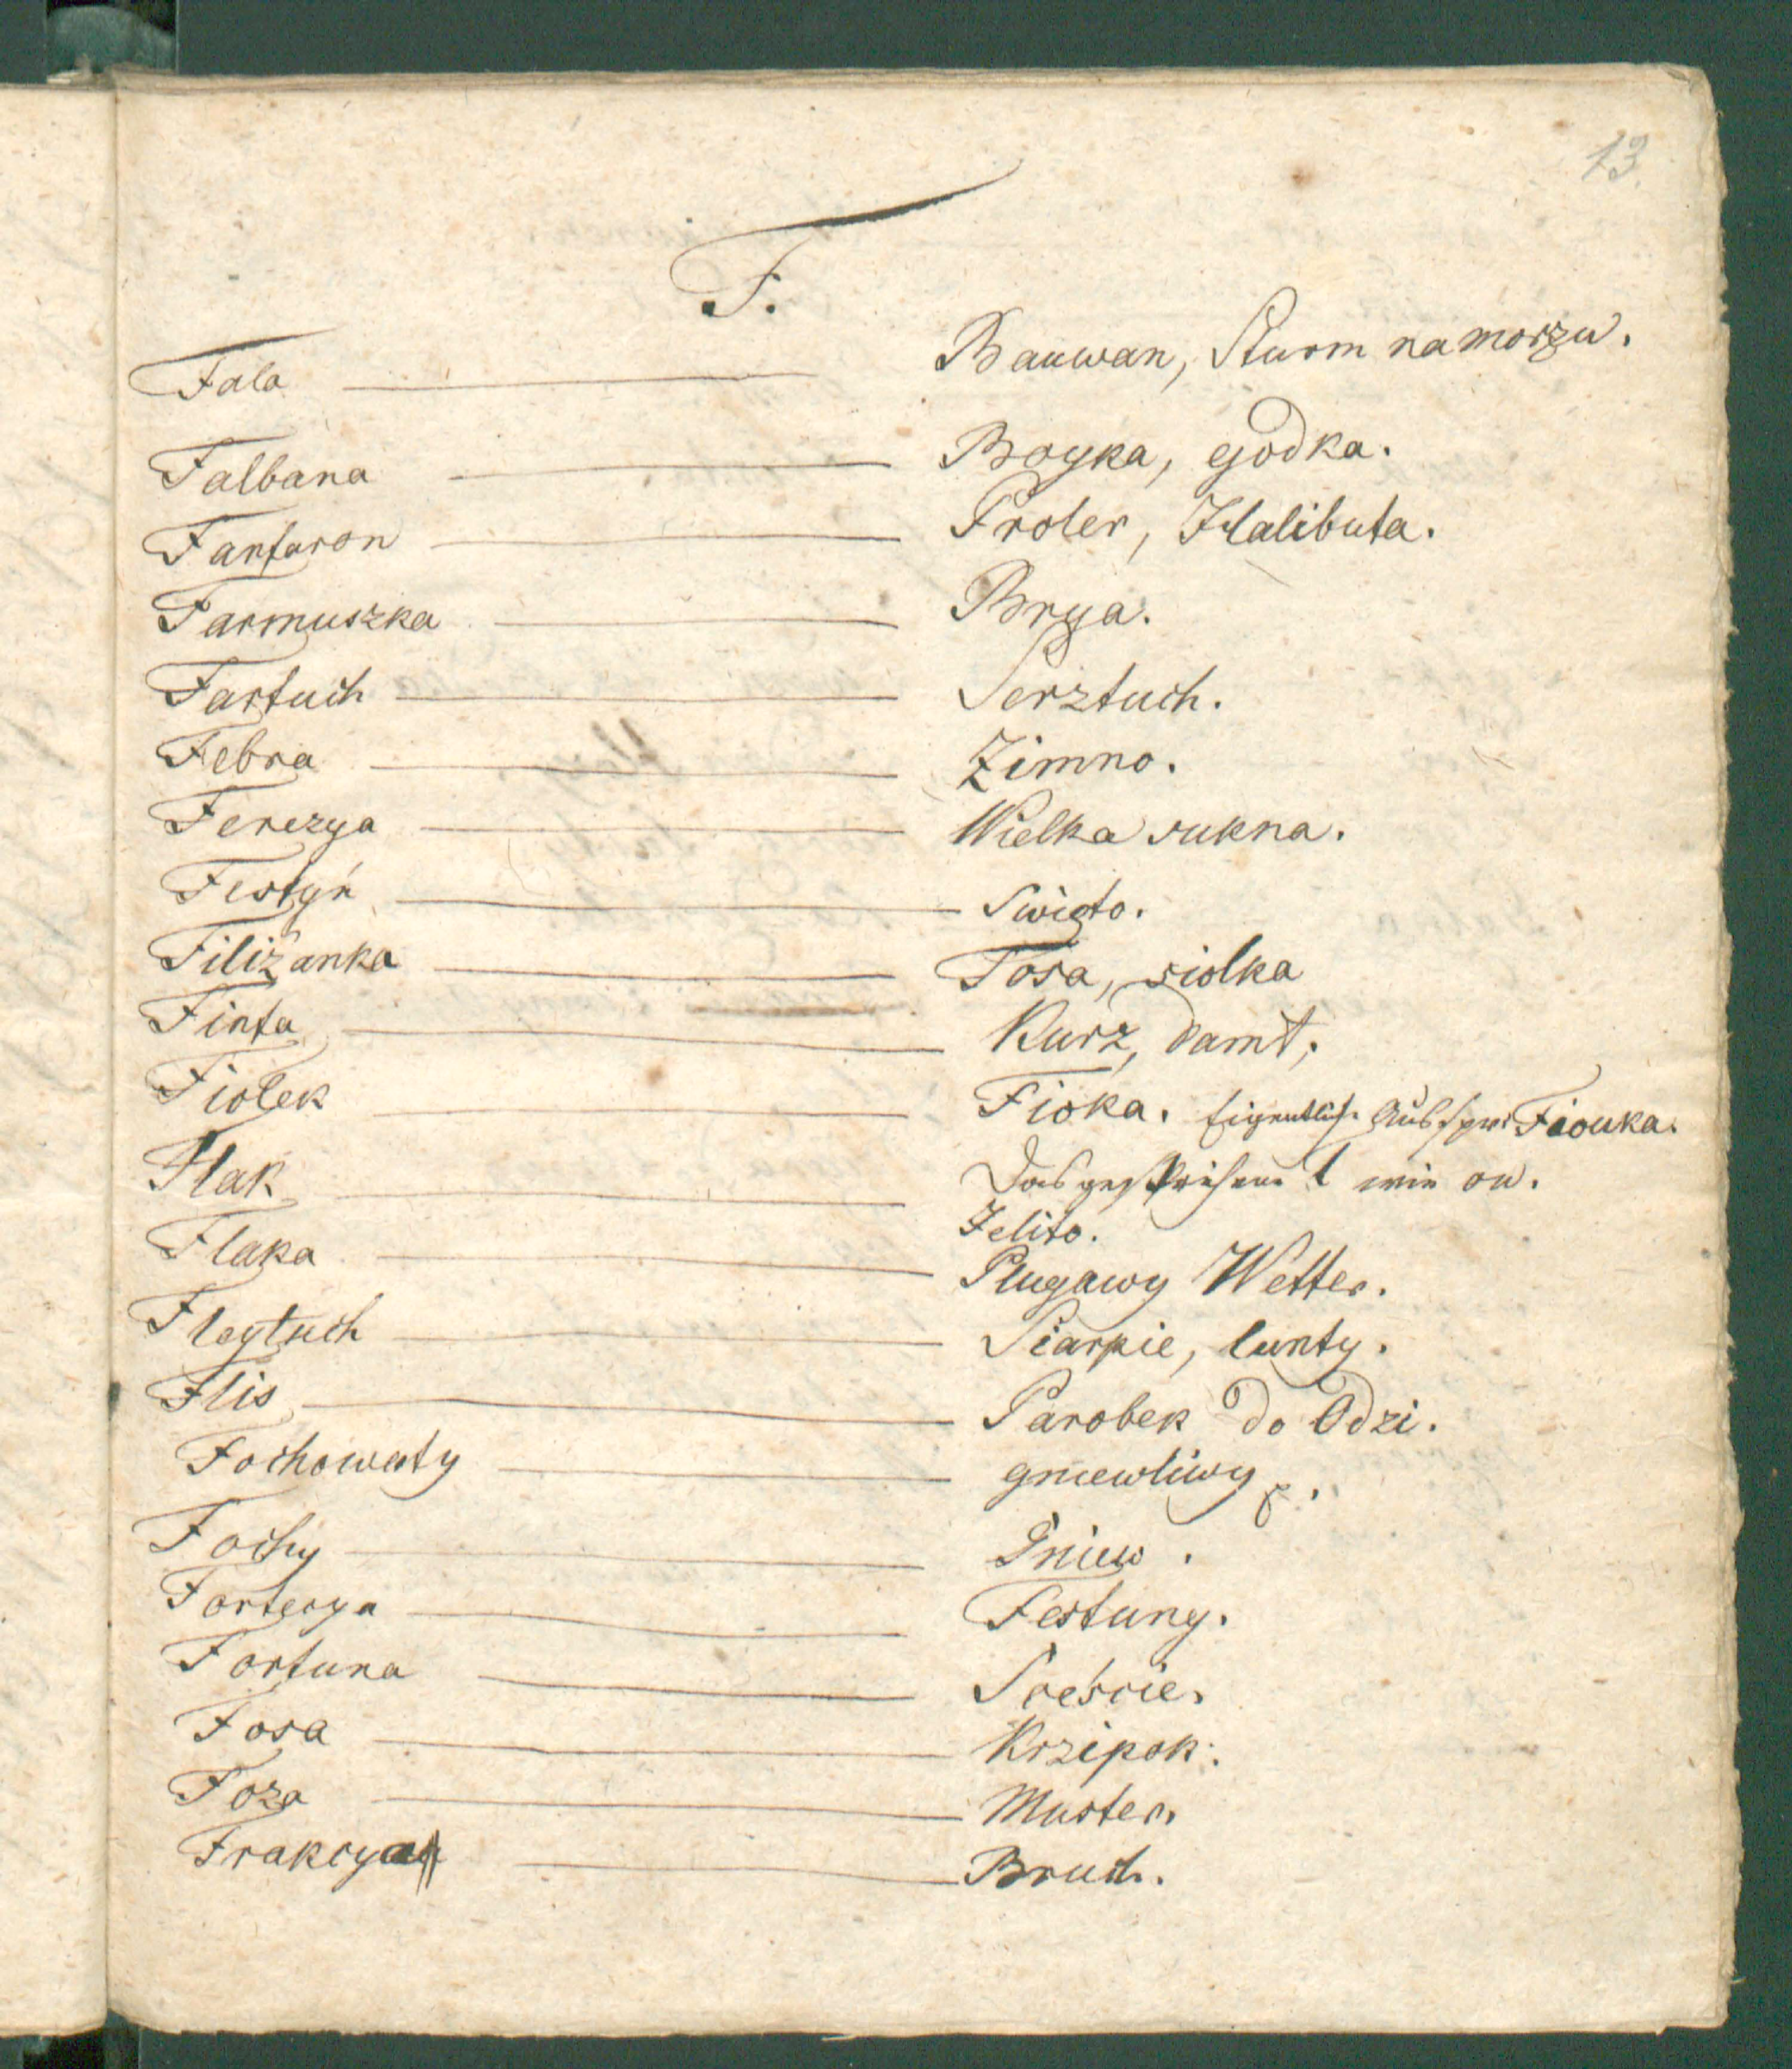 13.
F.
Fala — Bauwan, Sturm na morzu.
Falbana — Boyka, godka.
Fanfaron — Proler, Halibuta.
Farmuszka — Brya.
Fartuch — Serztuch.
Febra — Zimno.
Ferezya — Wielka sukna.
Festyn — Swięto.
Filiżanka — Tosa, siolka
Finta — Kurz, damt,
Fiolek — Fioka. Eigentliche Ausspr. Fiouka.
Das gestrichene ł wie ou.
Flak — Jelito.
Flaka — Plugawy Wetter.
Fleytuch — Siarpie, lunty.
Flis — Parobek do Odzi.
Fochowaty — gniewliwy
Fochy — Gniew.
Forterya — Festung.
Fortuna — Sceście.
Fosa — Krzipok.
Foza — Muster.
Frakcya — Bruch.